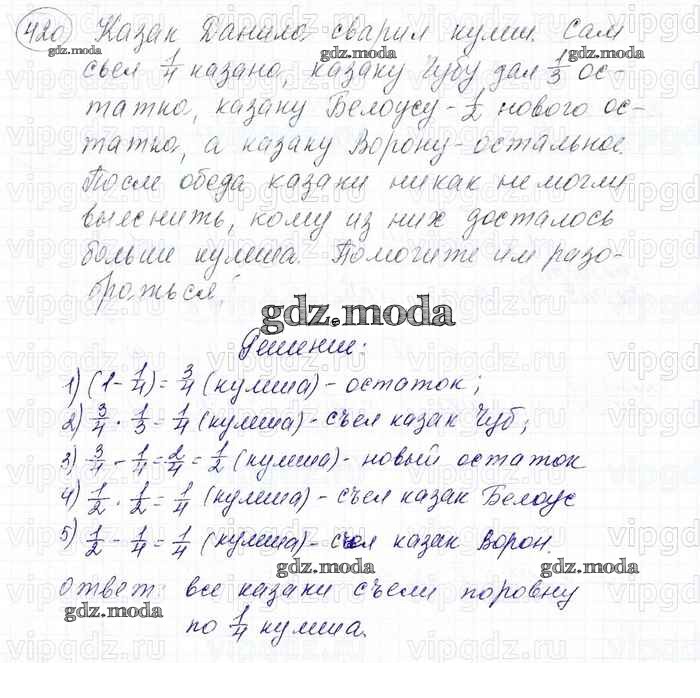 420 Казак Данило сварил кулиш. Сам
съел 1/4 казана, казаку Чубу дал 1/3 ос-
татка, казаку Белоусу - 1/2 нового ос-
татка, а казаку Ворону - остальное.
После обеда казаки никак не могли
выяснить, кому из них досталось
больше кулиша. Помогите им разо-
браться!
gdz.moda
Решение:
1) (1 - 1/4) = 3/4 (кулиша) - остаток;
2) 3/4 · 1/3 = 1/4 (кулиша) - съел казак Чуб;
3) 3/4 - 1/4 = 2/4 = 1/2 (кулиша) - новый остаток
4) 1/2 · 1/2 = 1/4 (кулиша) - съел казак Белоус
5) 1/2 - 1/4 = 1/4 (кулиша) - съел казак Ворон.
Ответ: все казаки съели поровну
по 1/4 кулиша.